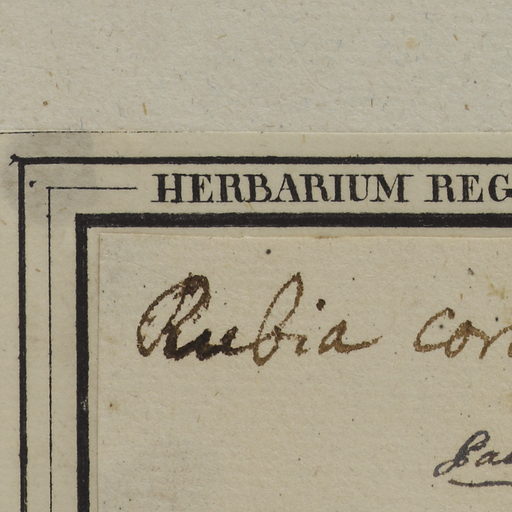 HERBARIUM REG
Rubia cor